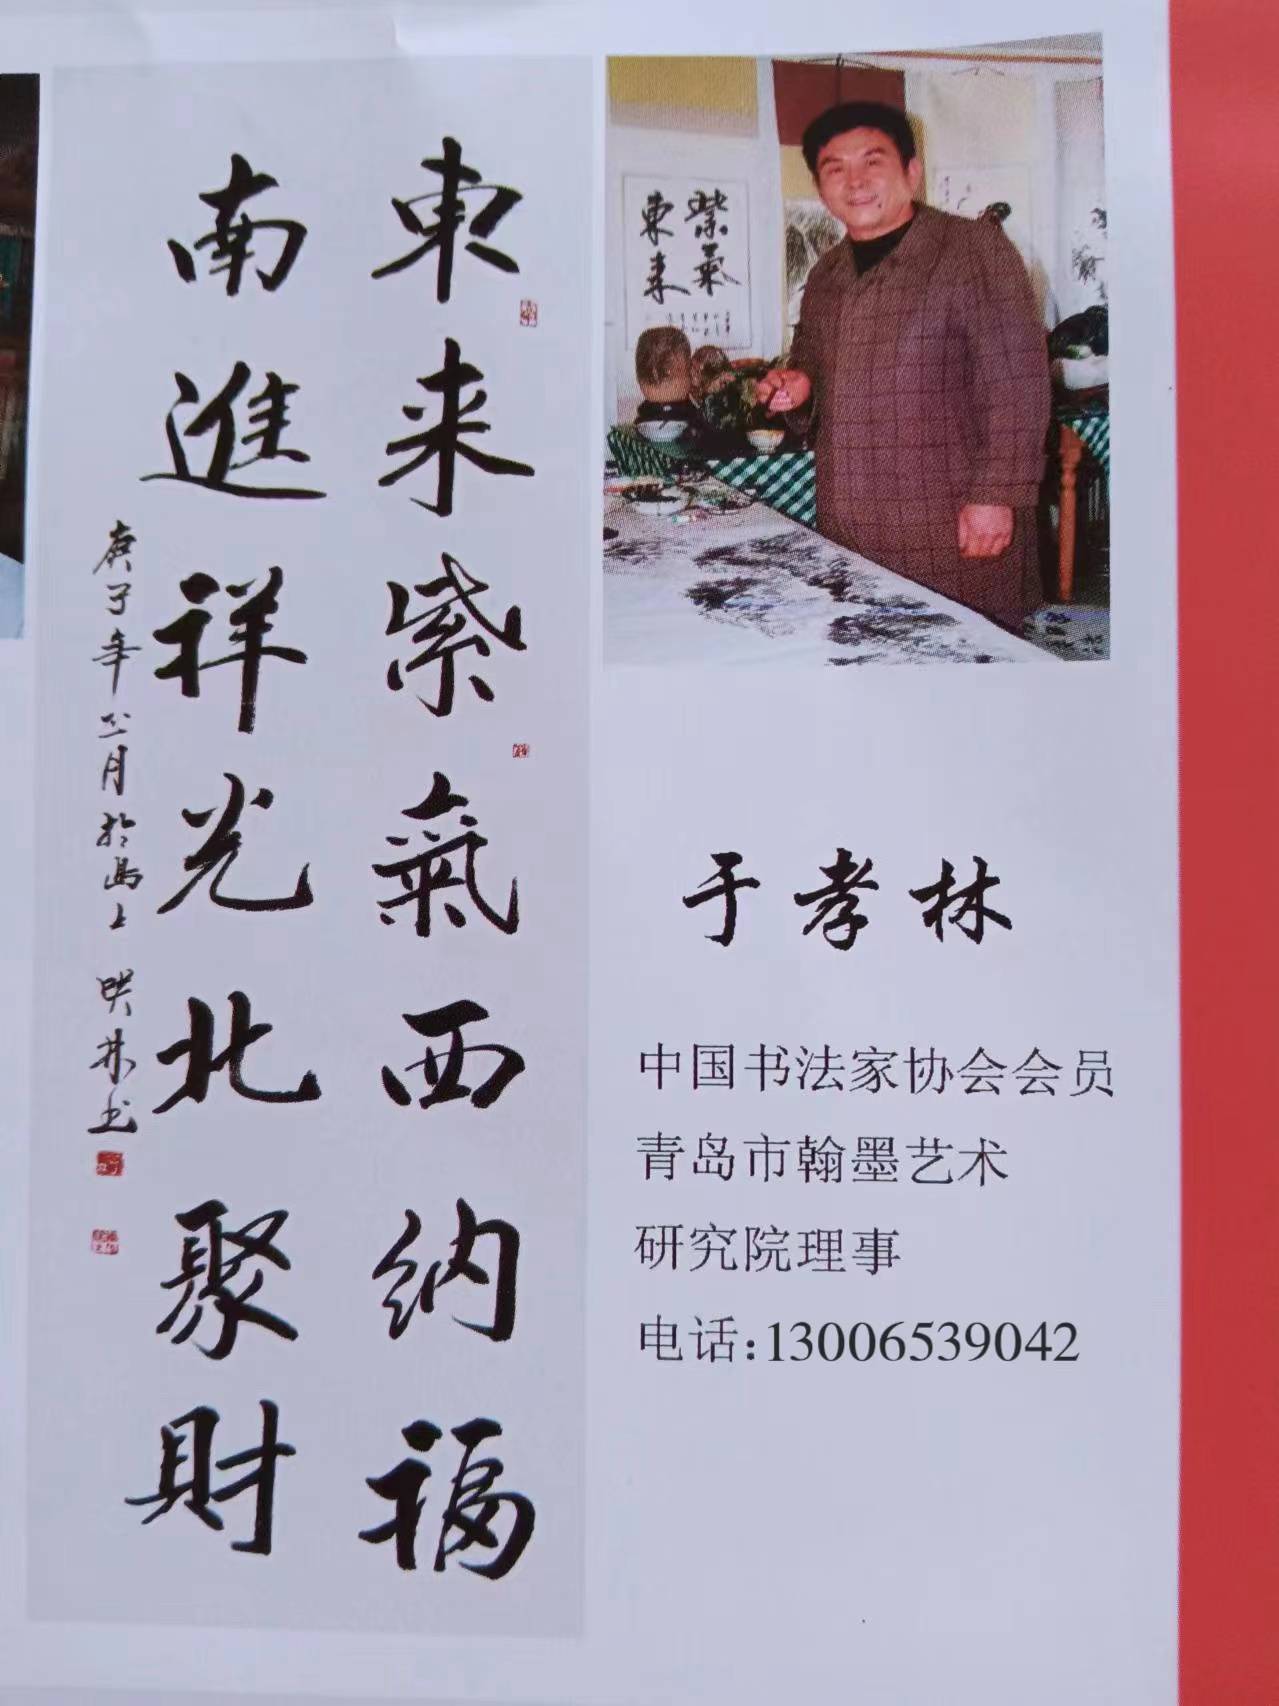 東来紫氣西纳福
南進祥光北聚財
庚子年 月於島上 映林书
紫氣
東来
于孝林
中国书法家协会会员
青岛市翰墨艺术
研究院理事
电话：13006539042